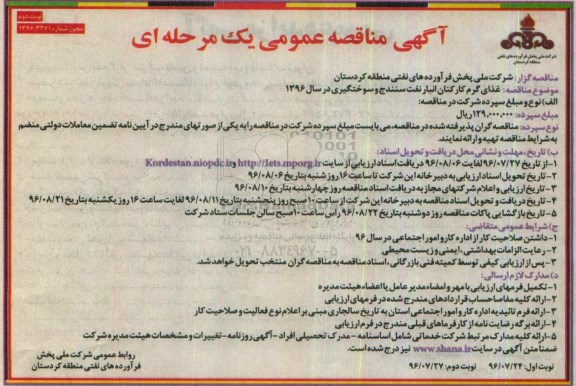 نوبت دوم
مجوز شماره ۱۳۹۶,۳۴۷۱
شرکت ملی پخش فرآورده های نفتی
منطقه کردستان
آگهی مناقصه عمومی یک مرحله ای
مناقصه گزار: شرکت ملی پخش فرآورده های نفتی منطقه کردستان
موضوع مناقصه: غذای گرم کارکنان انبار نفت سنندج و سوختگیری در سال ۱۳۹۶
الف) نوع و مبلغ سپرده شرکت در مناقصه:
مبلغ سپرده: ۱۲۹,۰۰۰,۰۰۰ ریال
نوع سپرده: مناقصه گران پذیرفته شده در مناقصه، می بایست مبلغ سپرده شرکت در مناقصه را به یکی از صورتهای مندرج در آیین نامه تضمین معاملات دولتی منضم
به شرایط مناقصه تهیه و ارائه نمایند.
ب) تاریخ، مهلت و نشانی محل دریافت و تحویل اسناد:
۱- از تاریخ ۹۶/۰۷/۲۷ لغایت ۹۶/۰۸/۰۶ دریافت اسناد ارزیابی از سایت http://Iets.mporg.ir و Kordestan.niopdc.ir
۲- تاریخ تحویل اسناد ارزیابی به دبیرخانه این شرکت تا ساعت ۱۶ روز شنبه بتاریخ ۹۶/۰۸/۰۶
۳- تاریخ ارزیابی و اعلام شرکتهای مجاز به دریافت اسناد مناقصه روز چهارشنبه بتاریخ ۹۶/۰۸/۱۰
۴- تاریخ دریافت و تحویل اسناد مناقصه به دبیرخانه این شرکت از ساعت ۱۰ صبح روز پنجشنبه بتاریخ ۹۶/۰۸/۱۱ لغایت ساعت ۱۶ روز یکشنبه بتاریخ ۹۶/۰۸/۲۱
۵- تاریخ بازگشایی پاکات مناقصه روز دوشنبه بتاریخ ۹۶/۰۸/۲۲ راس ساعت ۱۰ صبح سالن جلسات ستاد شرکت
ج) شرایط عمومی متقاضی:
۱- داشتن صلاحیت کار از اداره کار و امور اجتماعی در سال ۹۶
۲- رعایت الزامات بهداشتی، ایمنی و زیست محیطی
۳- پس از ارزیابی کیفی توسط کمیته فنی بازرگانی، اسناد مناقصه به مناقصه گران منتخب تحویل خواهد شد.
د) مدارک لازم ارسالی:
۱- تکمیل فرمهای ارزیابی با مهر و امضاء مدیر عامل یا اعضاء هیئت مدیره
۲- ارائه کلیه مفاصا حساب قراردادهای مندرج شده در فرمهای ارزیابی
۳- ارائه فرم تائید به اداره کار و امور اجتماعی استان به تاریخ سال جاری مبنی بر اعلام نوع فعالیت و صلاحیت کار
۴- ارائه برگه رضایت نامه از کارفرماهای قبلی مندرج در فرم ارزیابی
۵- ارائه کلیه مدارک مرتبط شرکت خدماتی شامل اساسنامه - مدرک تحصیلی افراد - آگهی روزنامه - تغییرات و مشخصات هیئت مدیره شرکت
ضمنا متن آگهی در سایت www.shana.ir نیز درج شده است.
نوبت اول: ۹۶/۰۷/۲۴ نوبت دوم: ۹۶/۰۷/۲۷
روابط عمومی شرکت ملی پخش
فرآورده های نفتی منطقه کردستان